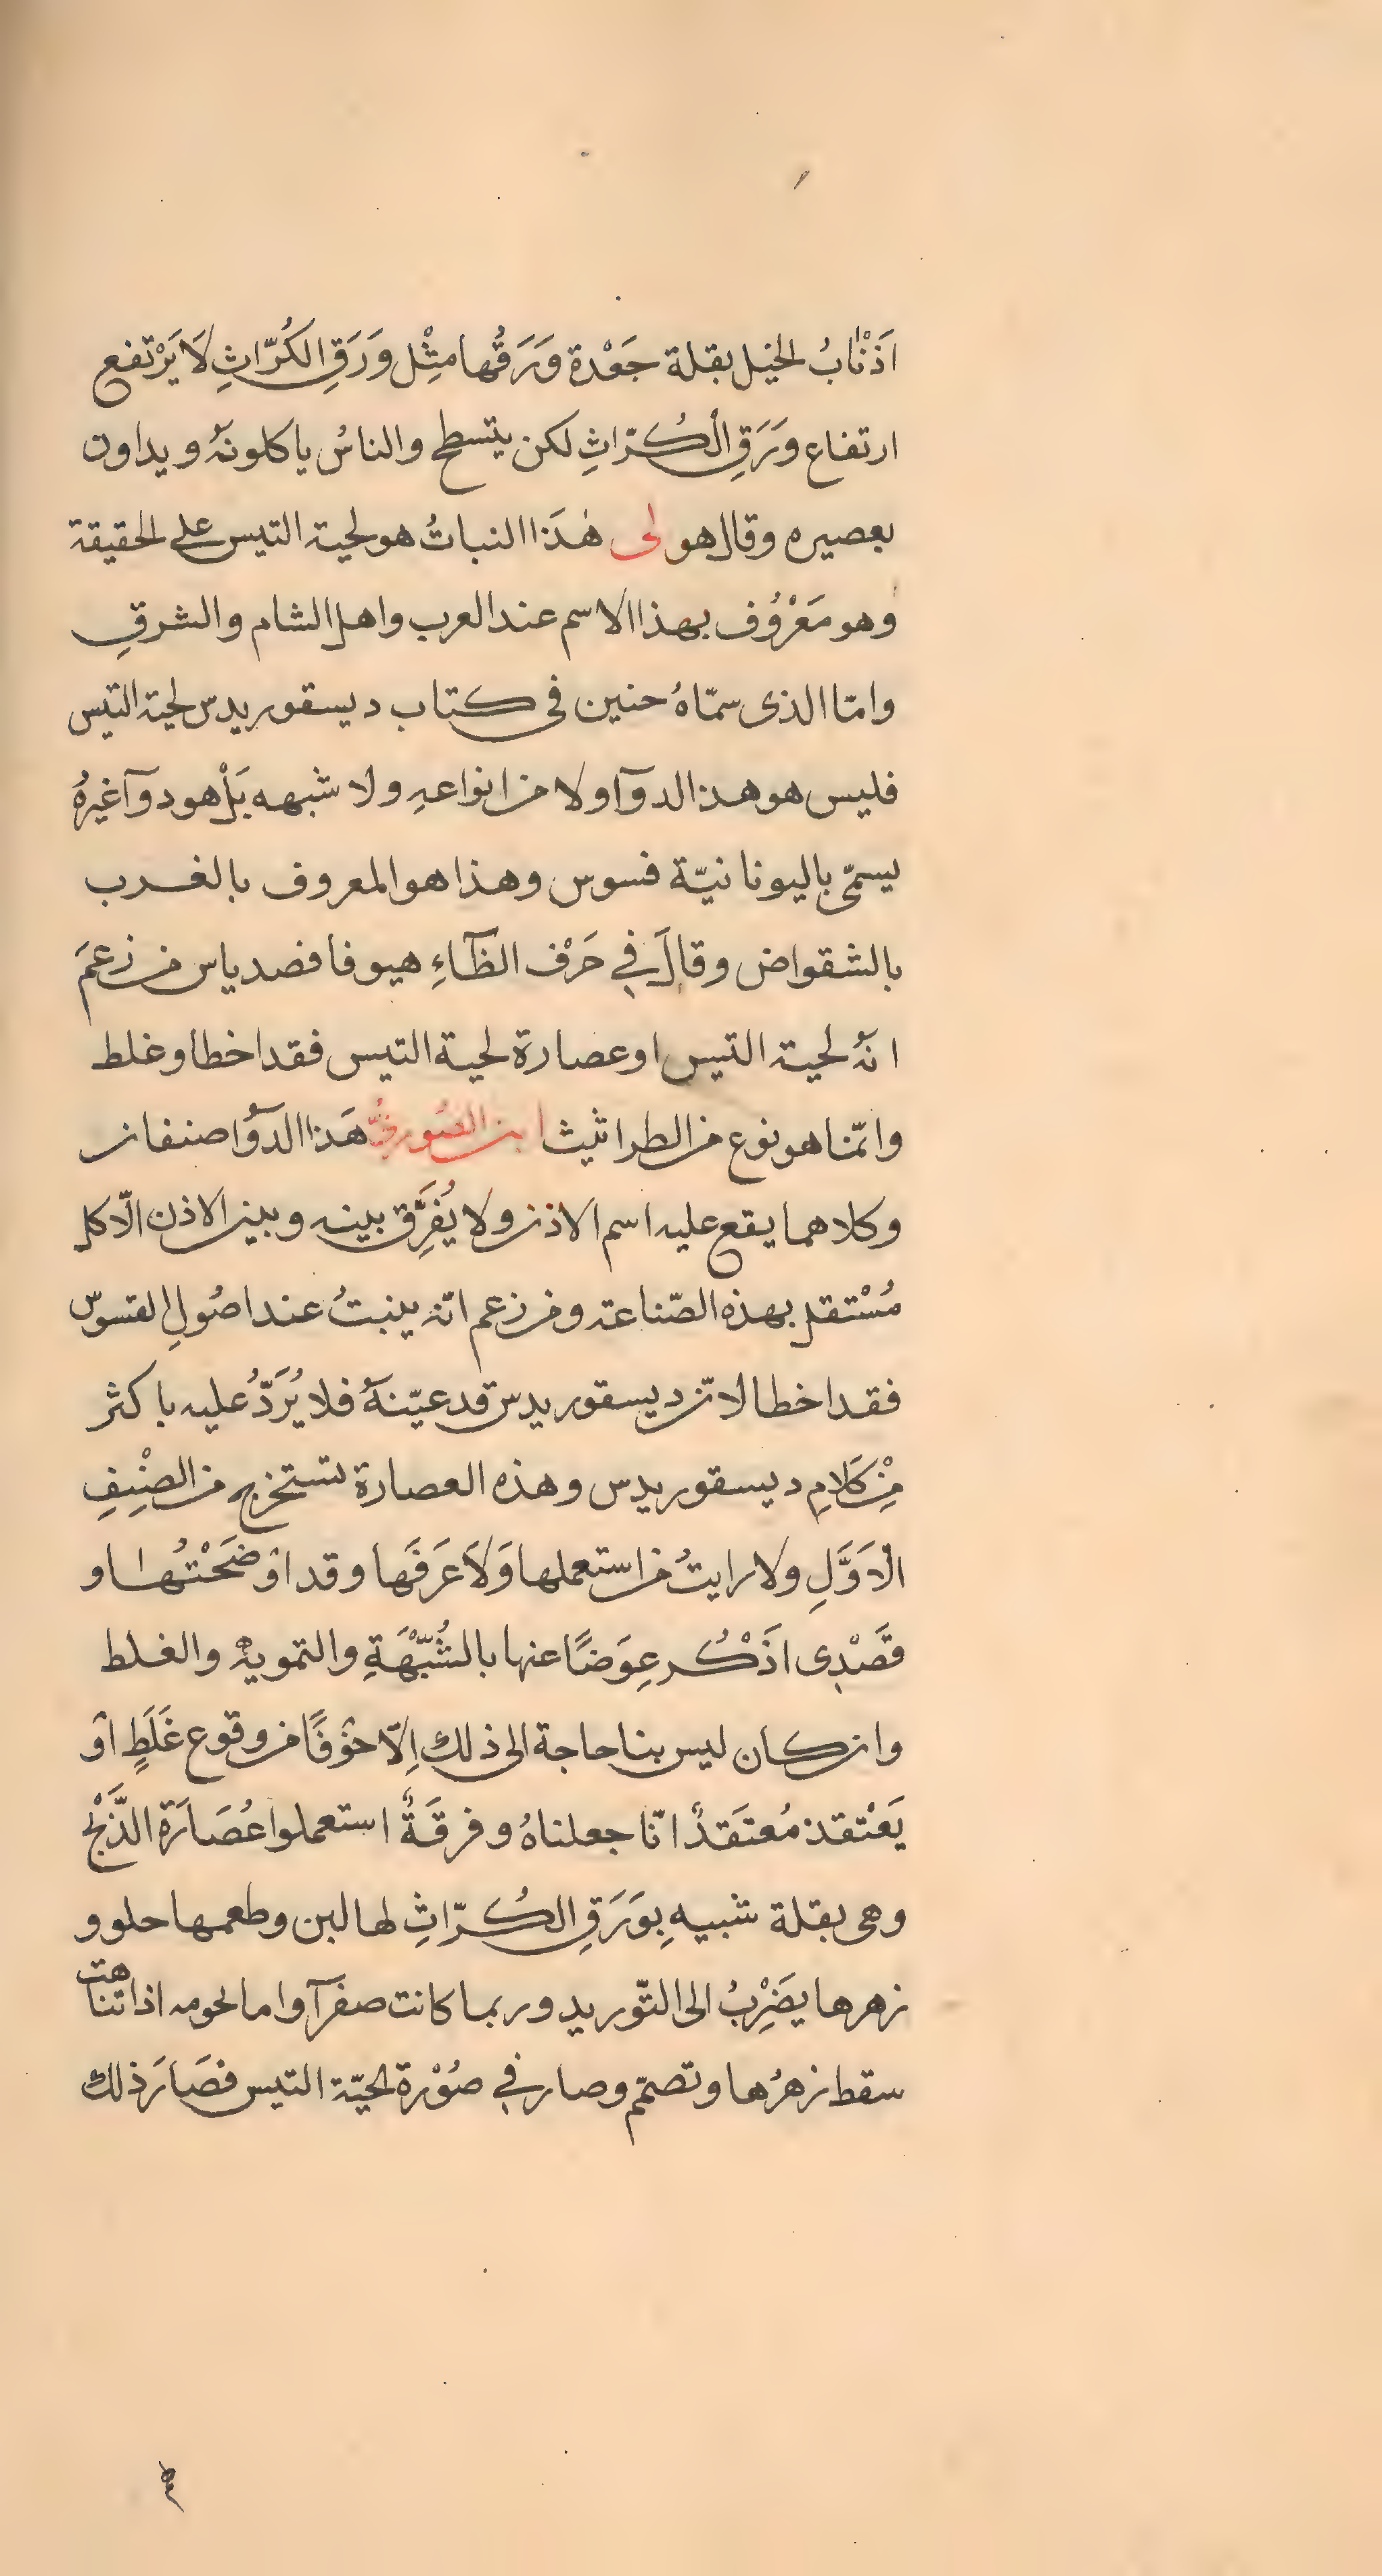 اَذْنَابُ الخيل بقلة جَعْدة وَرَقُها مِثْل وَرَقِ الكُرّاثِ لَا يَرْتفع
ارتفاع وَرَقِ الْكُرّاثِ لكن يتسطح والناسُ ياكلونهُ ويداون
بعصيره وقال هو لى هٰذَا النباتُ هو لحية التيس على الحقيقة
وهو مَعْرُوف بهذا الاسم عند العرب واهل الشام والشرقِ
وامّا الذى سمّاهُ حنين فى كتاب ديسقوريدس لحية التيس
فليس هو هذ الدوآ ولا من انواعهِ ولا شبهه بَلْ هو دوآ غيرهُ
يسمّى باليونانيّة فسوس وهذا هو المعروف بالغرب
بالشقواض وقالَ في حَرْف الطآءِ هيوفافصدياس من زعمَ
انهُ لحية التيس او عصارة لحية التيس فقد اخطا وغلط
وانّما هو نوع من الطراثيث ابن الصّورىّ هَذا الدوُا صنفان
وكلاهما يقع عليه اسم الاذن ولا يُفَرَّق بينه وبين الاذن الّا كل
مُسْتقل بهذه الصّناعة ومن زعم انّه ينبتُ عند اصُولِ القسوس
فقد اخطا لانّ ديسقوريدس قد عيّنهُ فلا يُرَدُّ عليه باكثر
مِنْ كَلامِ ديسقوريدس وهذه العصارة تستخرج من الصْنِفِ
الْاَوَّلِ ولا رايتُ من استعملها وَلَا عَرَفَها وقد اوْضَحْتُها و
قَصْدِى اَذْكُر عِوَضًا عنها بالشُّبْهَةِ والتمويه والغلط
وان كان ليس بنا حاجة الى ذلك اِلّا خوْفًا من وقوع غَلَطٍ اوْ
يَعْتقد مُعتَقدٌ انّا جعلناهُ وفرقَةٌ استعملوا عُصَارَة الذَّبْح
وهى بقلة شبيهِ بِوَرَقِ الكُرّاثِ لها لبن وطعمها حلو و
زهرها يضَرِْبُ الى التّوريد وربما كانت صفرآ واما لحومه اذا تناهت
سقط زهرُها وتصمّم وصار في صُوْرة لحيّة التيس فصَارَ ذلك